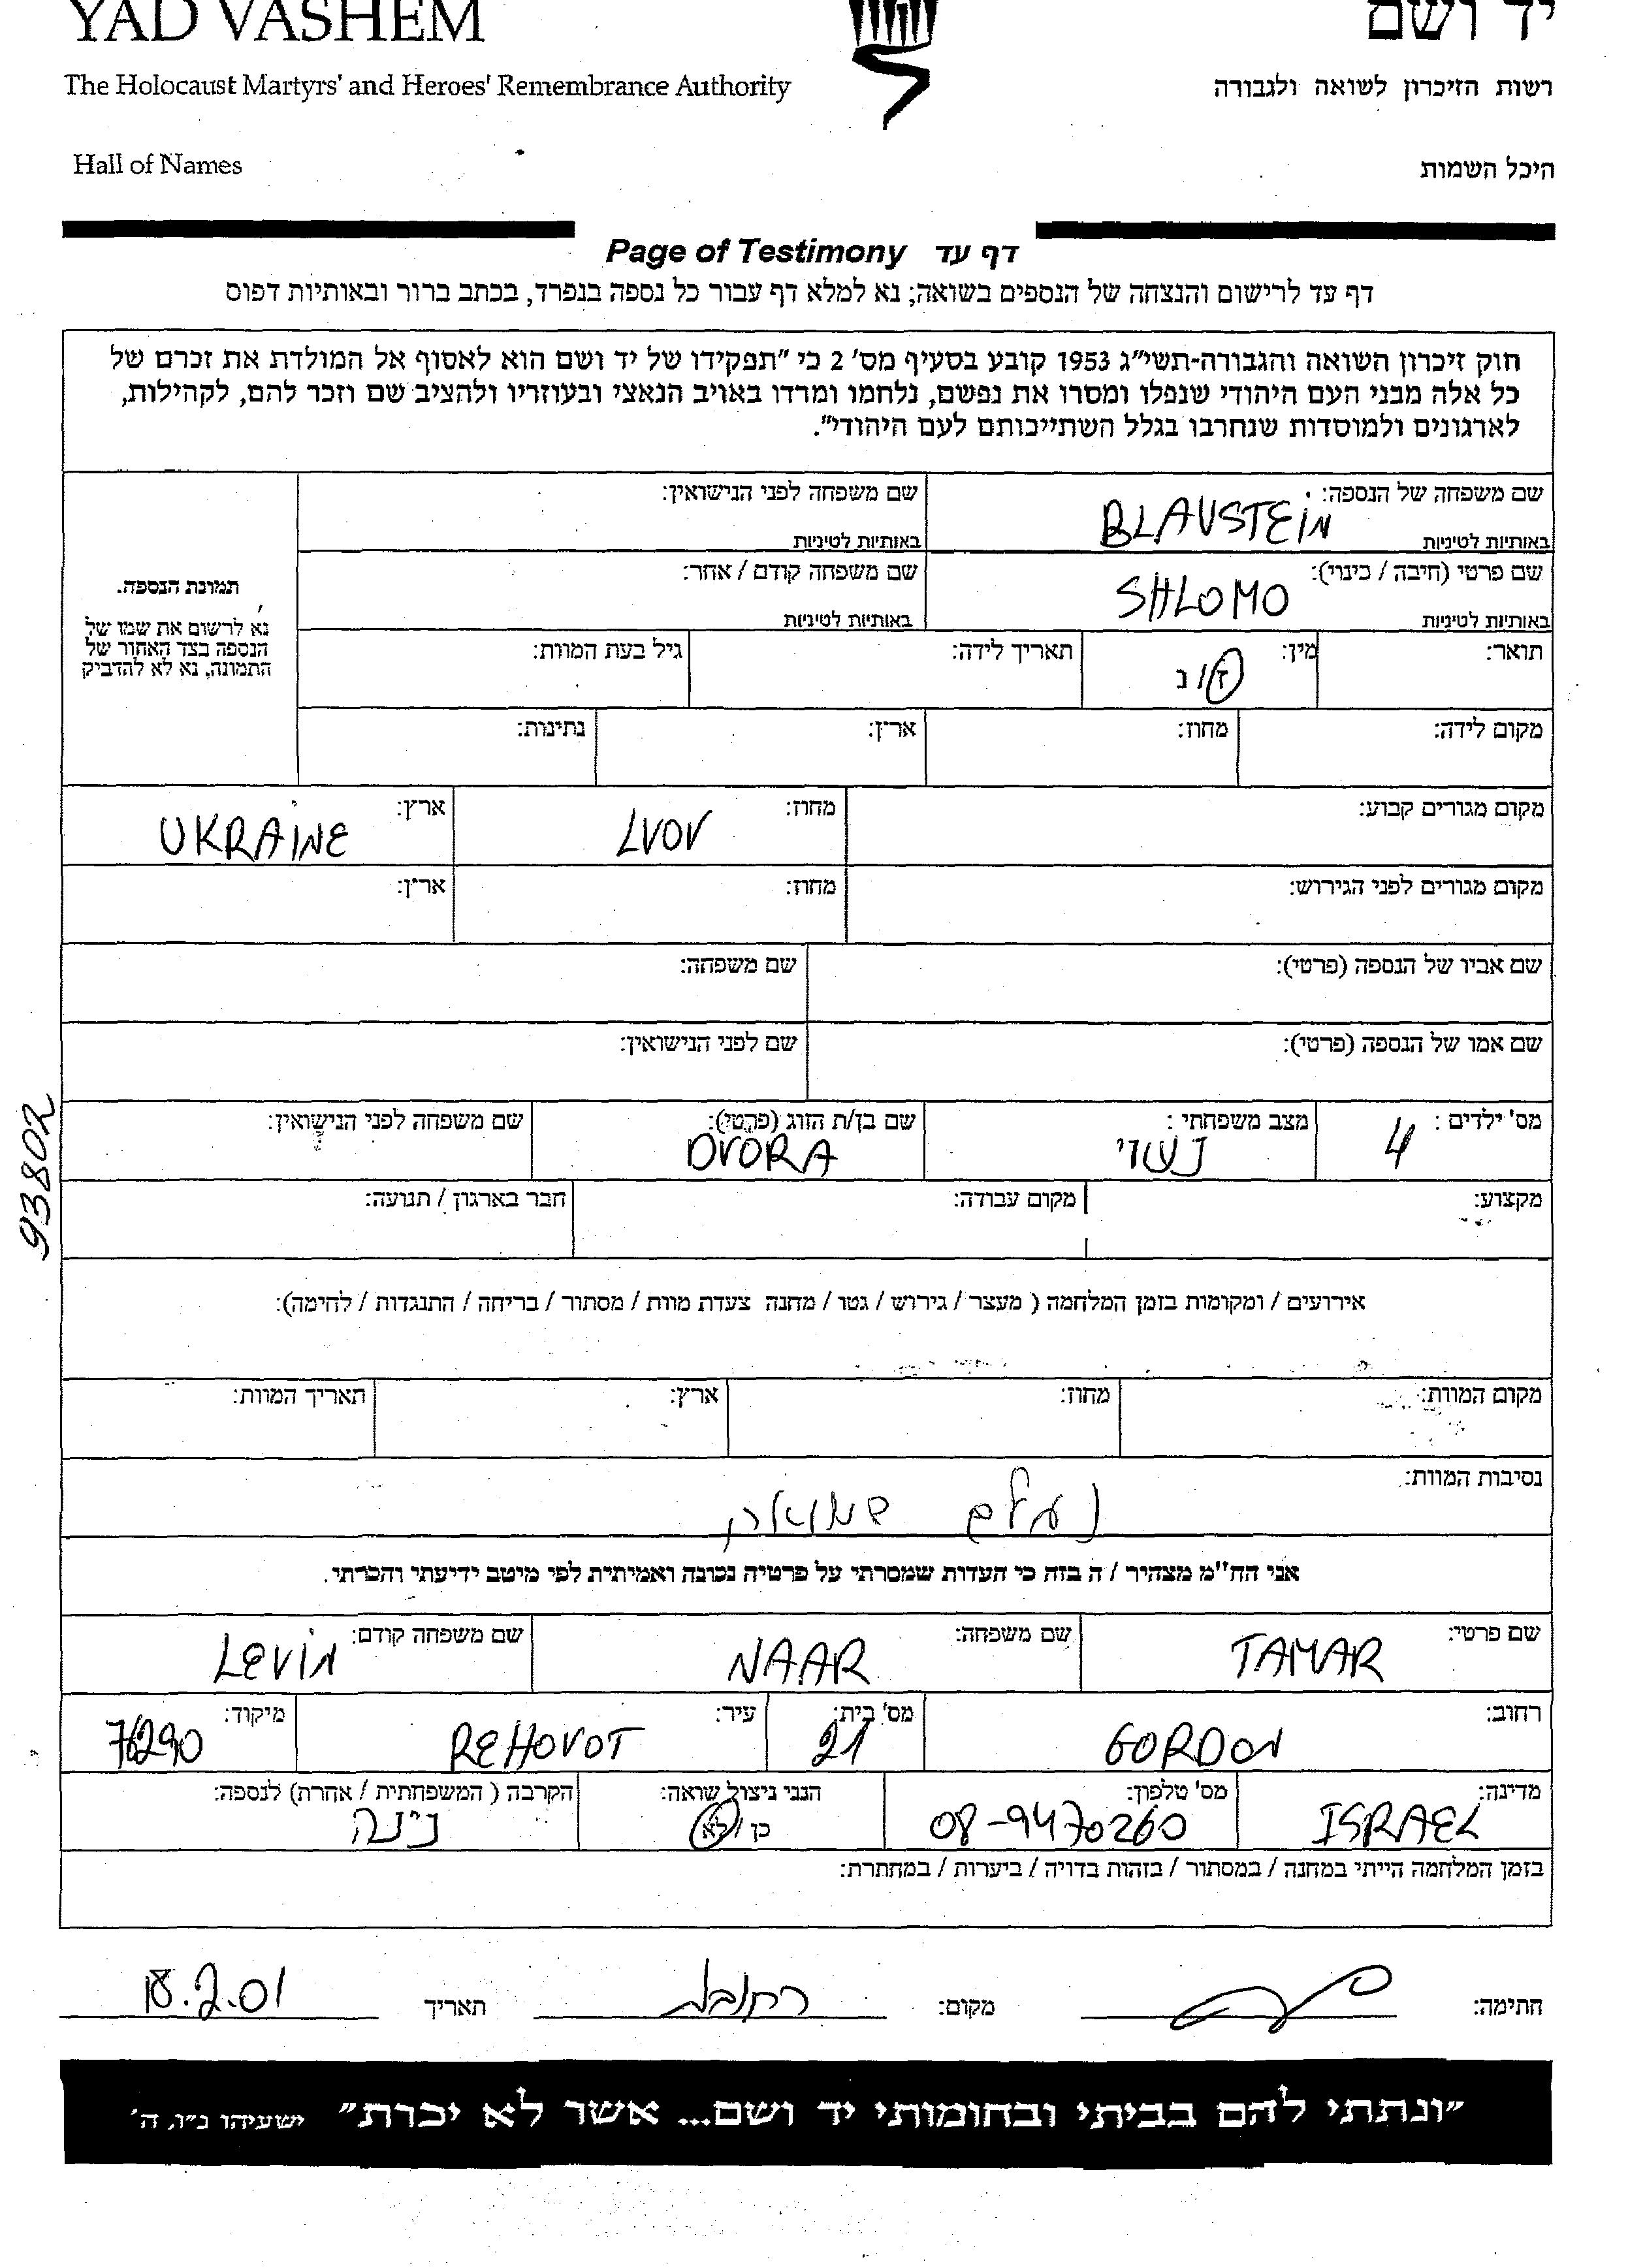 YAD VASHEM
יד ושם
The Holocaust Martyrs' and Heroes' Remembrance Authority
רשות הזיכרון לשואה ולגבורה
Hall of Names
היכל השמות
Page of Testimony דף עד
דף עד לרישום והנצחה של הנספים בשואה; נא למלא דף עבור כל נספה בנפרד, בכתב ברור ובאותיות דפוס
חוק זיכרון השואה והגבורה-תשי״ג 1953 קובע בסעיף מס' 2 כי ״תפקידו של יד ושם הוא לאסוף אל המולדת את זכרם של
כל אלה מבני העם היהודי שנפלו ומסרו את נפשם, נלחמו ומרדו באויב הנאצי ובעוזריו ולהציב שם וזכר להם, לקהילות,
לארגונים ולמוסדות שנחרבו בגלל השתייכותם לעם היהודי״.
שם משפחה של הנספה: BLAUSTEIN
באותיות לטיניות
שם משפחה לפני הנישואין:
באותיות לטיניות
תמונת הנספה.
נא לרשום את שמו של
הנספה בצד האחור של
התמונה, נא לא להדביק
שם פרטי (חיבה / כינוי): SHLOMO
באותיות לטיניות
שם משפחה קודם / אחר:
באותיות לטיניות
תואר: מין: ז/נ תאריך לידה: גיל בעת המוות:
מקום לידה: מחוז: ארץ: נתינות:
מקום מגורים קבוע: מחוז: LVOV ארץ: UKRAINE
מקום מגורים לפני הגירוש: מחוז: ארץ:
שם אביו של הנספה (פרטי): שם משפחה:
שם אמו של הנספה (פרטי): שם לפני הנישואין:
מס' ילדים : 4 מצב משפחתי : נשוי שם בן/ת הזוג (פרטי): DVORA שם משפחה לפני הנישואין:
93802
מקצוע: מקום עבודה: חבר בארגון / תנועה:
אירועים / ומקומות בזמן המלחמה ( מעצר / גירוש / גטו / מחנה צעדת מוות / מסתור / בריחה / התנגדות / לחימה):
מקום המוות: מחוז: ארץ: תאריך המוות:
נסיבות המוות:
נעלם בשואה
אני הח"מ מצהיר / ה בזה כי העדות שמסרתי על פרטיה נכונה ואמיתית לפי מיטב ידיעתי והכרתי.
שם פרטי: TAMAR שם משפחה: NAAR שם משפחה קודם: LEVIN
רחוב: GORDON מס' בית: 21 עיר: REHOVOT מיקוד: 76290
מדינה: ISRAEL מס' טלפון: 08-9470260 הנני ניצול שואה: כן / לא הקרבה ( המשפחתית / אחרת) לנספה: נינה
בזמן המלחמה הייתי במחנה / במסתור / בזהות בדויה / ביערות / במחתרת:
חתימה: מקום: רחובות תאריך 18.2.01
״ונתתי להם בביתי ובחומותי יד ושם... אשר לא יכרת״ ישעיהו נ״ו, ה'